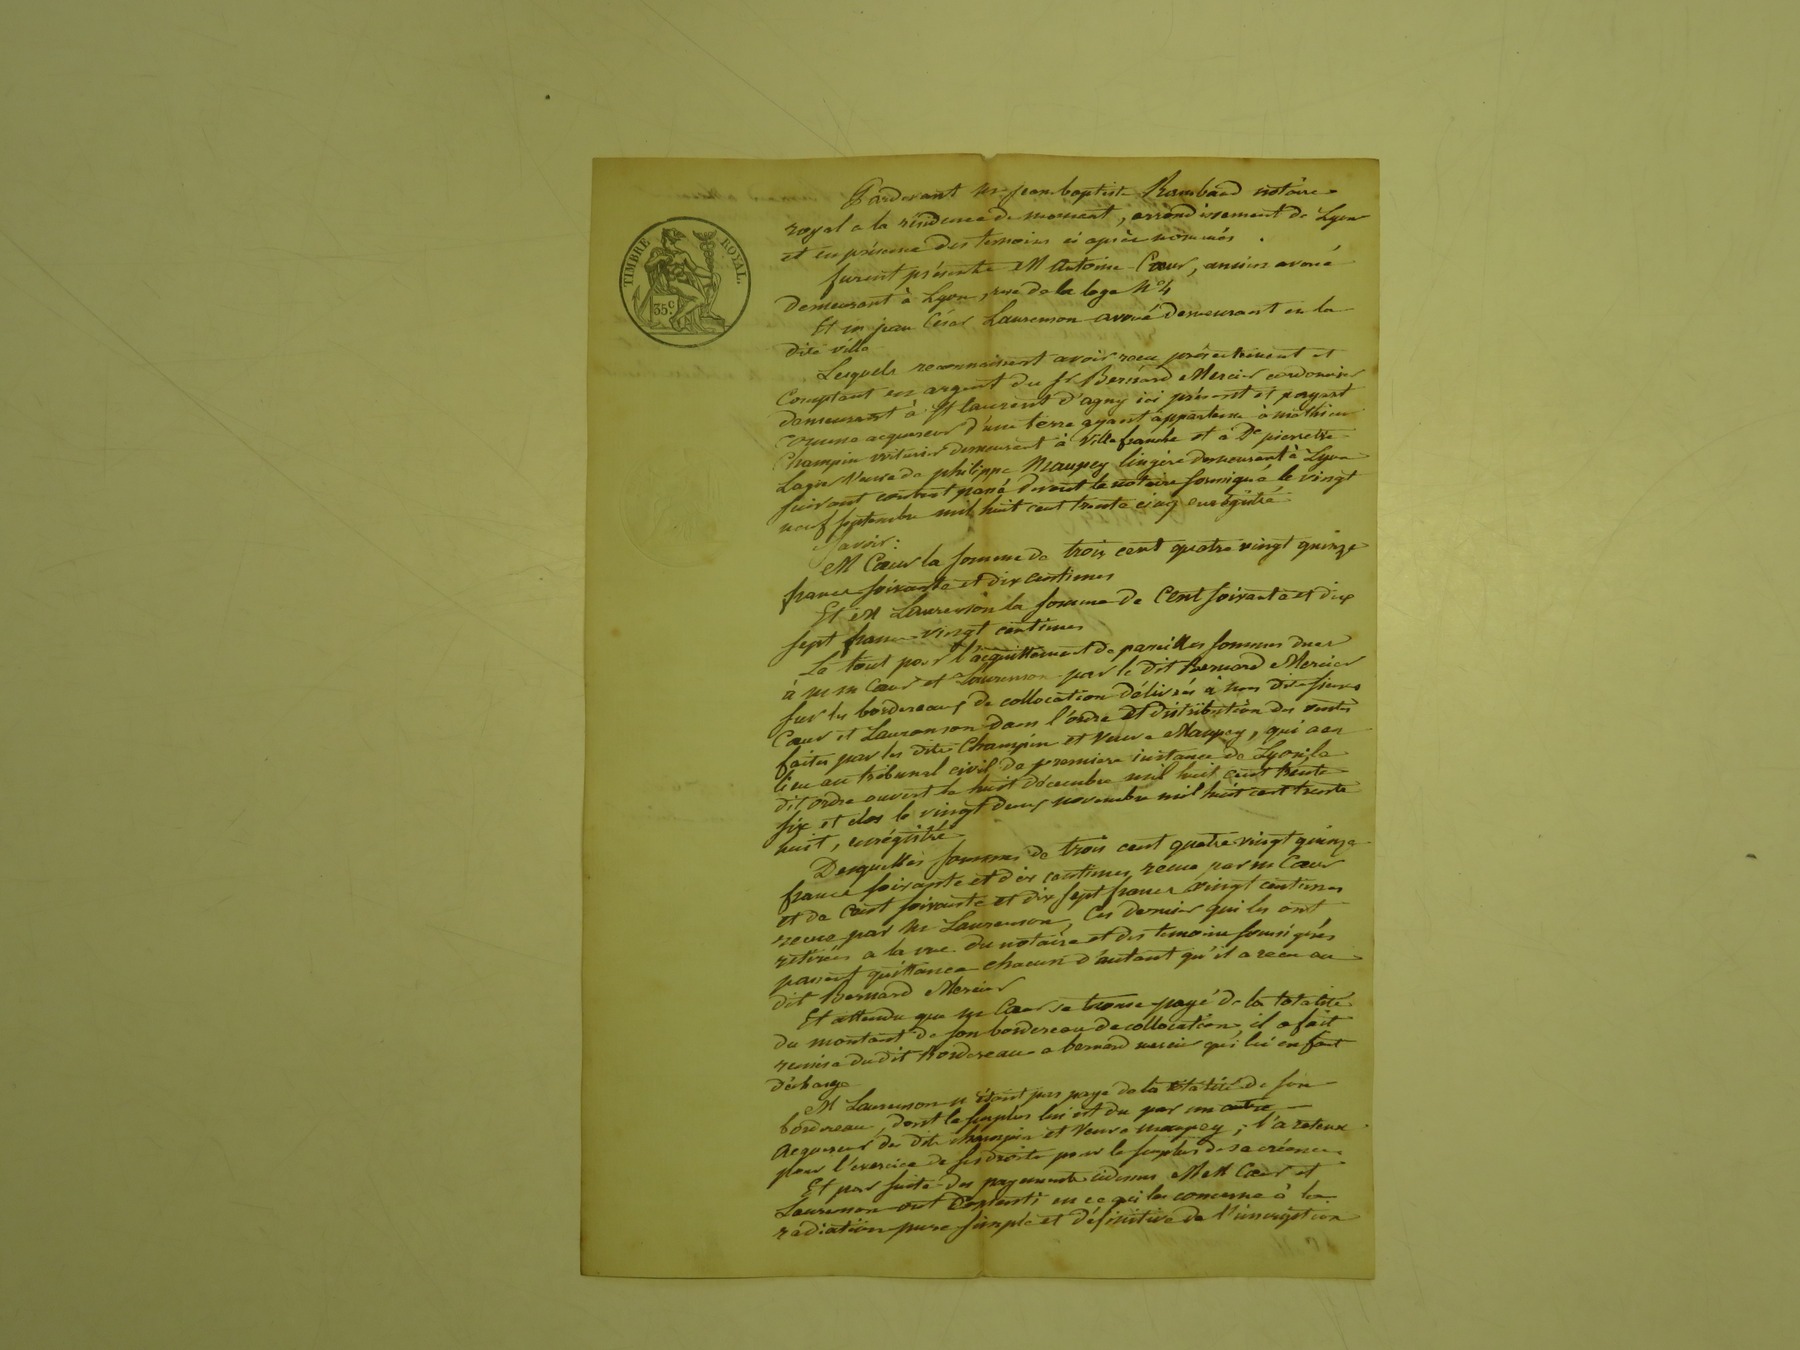 TIMBRE ROYAL
35 c.
Pardevant Me Jean baptiste Rambaud notaire
royal a la résidence de mornant, arrondissement de Lyon
et en présence des temoins ci après nommés.
furent présents M Antoine Cœur, ancien avoué
demeurant à Lyon, rue de la loge No 4
Et m jean César Laurenson avoué demeurant en la
dite ville
Lesquels reconnaissent avoir recu présentement et
Comptant en argent du Sr Bernard Mercier cordonnier
demeurant à St laurent d'agny ici présent et payant
comme acquereur d'une terre ayant appartenu à mathieu
Champin voiturier demeurant à Villefranche et à De pierrette
Veuve de philippe Maupey lingère demeurant à Lyon
suivant contrat passé devant le notaire soussigné le vingt
neuf septembre mil huit cent trente cinq enrégistré.
Savoir:
M Cœur la somme de trois cent quatre vingt quinze
francs soixante et dix centimes
Et M Laurenson la somme de Cent soixante et dix
sept francs vingt centimes
Le tout pour l'acquittement de pareilles sommes dues
à m m Cœur et Laurenson par le dit Bernard Mercier
sur les bordereaux de collocation délivrés à mes dits sieurs
Cœur et Laurenson dans l'ordre et distribution des ventes
faites par les dits Champin et Veuve Maupey, qui a eu
lieu au tribunal civil de premiere instance de Lyon, le
dit ordre ouvert le huit décembre mil huit cent trente
six et clos le vingt deux novembre mil huit cent trente
huit, enrégistré
Desquelles sommes de trois cent quatre vingt quinze
francs soixante et dix centimes, recue par m Cœur
et de Cent soixante et dix sept francs vingt centimes
recue par Me Laurenson, Ces dernier qui les ont
retirées a la vue du notaire et des temoins soussignés
passent quittance chacun d'autant qu'il a recu au
dit Bernard Mercier
Et attendu que m Cœur se trouve payé de la totalité
du montant de son bordereau de collocation, il a fait
remise du dit Bordereau a bernard mercier qui lui en fait
décharge
M Laurenson n'étant pas payé de la totalité de son
bordereau, dont le surplus lui est du par un autre
acquereur des dits champin et Veuve maupey; l'a retenu
pour l'exercice de ses droits pour le surplus de sa créance
Et par suite des payements cidessus MM Cœur et
Laurenson ont Consenti en ce qui les concerne à la
radiation pure simple et définitive de l'inscription